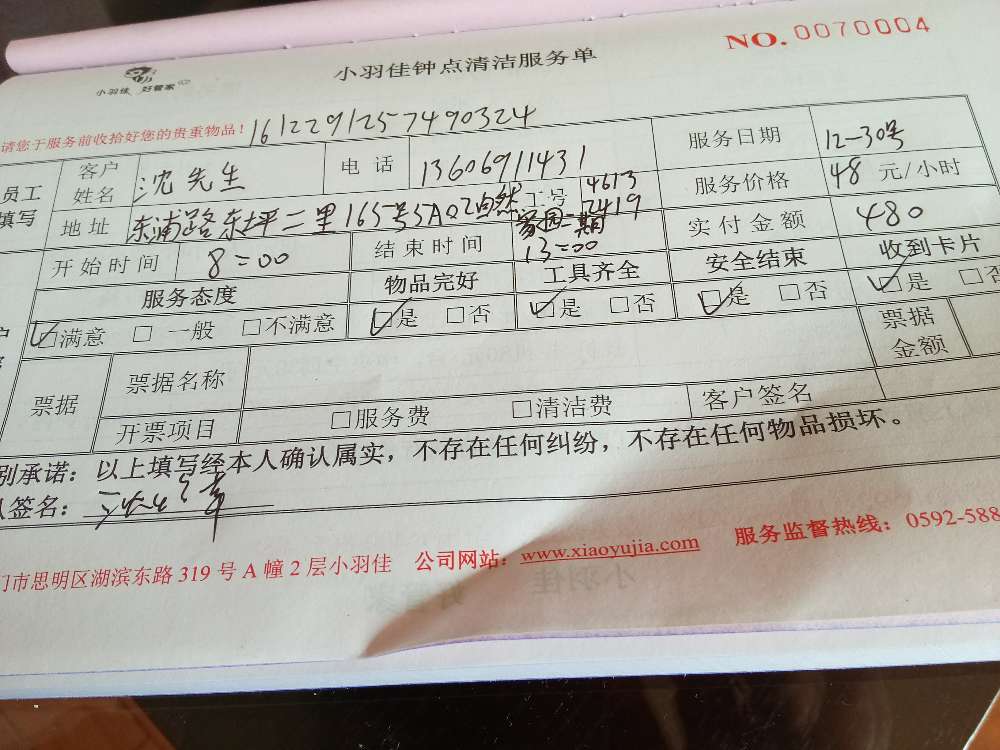 NO.0070004
小羽佳 好管家
小羽佳钟点清洁服务单
请您于服务前收拾好您的贵重物品！ 1612291257490324
员工填写 客户姓名 沈先生 电话 13606911431 服务日期 12-30号
地址 东浦路东坪二里165号5A02自然家园二期 工号 4613 2419 服务价格 48 元/小时
开始时间 8=00 结束时间 13=00 实付金额 480
服务态度 物品完好 工具齐全 安全结束 收到卡片
☑满意 □ 一般 □不满意 ☑是 □否 ☑是 □否 ☑是 □否 ☑是 □否
票据 票据名称 票据金额
开票项目 □服务费 □清洁费 客户签名
别承诺：以上填写经本人确认属实，不存在任何纠纷，不存在任何物品损坏。
人签名：
门市思明区湖滨东路 319 号 A 幢 2 层小羽佳 公司网站：www.xiaoyujia.com 服务监督热线：0592-588